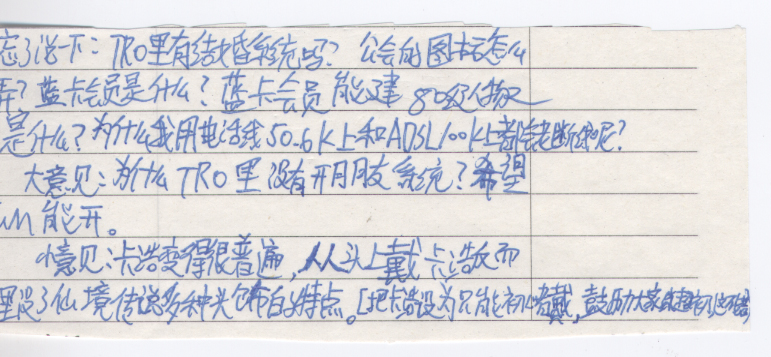 忘了说一下：TRO里有结婚系统吗？公会的图标怎么
弄？蓝卡会员是什么？蓝卡会员能建80级传
是什么？为什么我用电话线50.6K上和ADSL100K上都老断线呢？
大意见：为什么TRO里没有开朋友系统？希望
能开。
小意见：卡浩变得很普遍，人人头上戴卡浩反而
没了仙境传说多种头饰的特点。[把卡浩设为只能初心者戴，鼓励大家